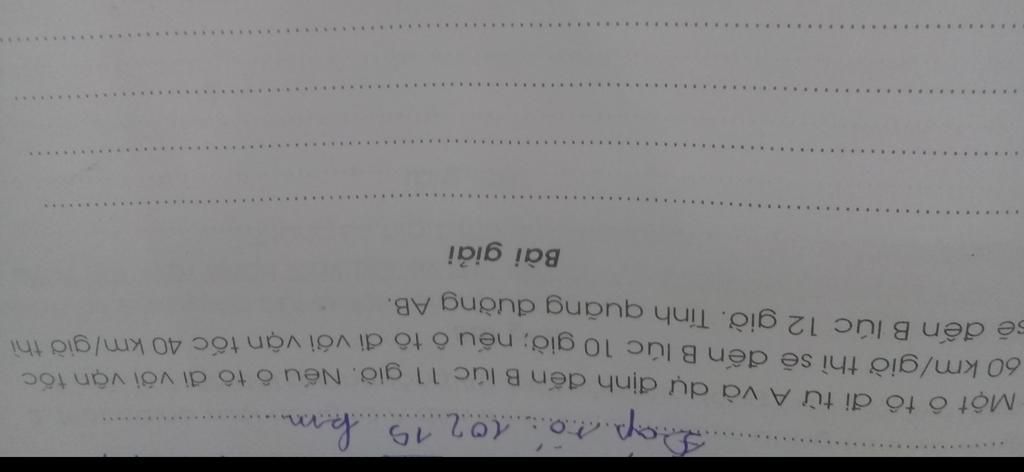 Đáp số: 102,15 km
Một ô tô đi từ A và dự định đến B lúc 11 giờ. Nếu ô tô đi với vận tốc
60 km/giờ thì sẽ đến B lúc 10 giờ; nếu ô tô đi với vận tốc 40 km/giờ thì
sẽ đến B lúc 12 giờ. Tính quãng đường AB.
Bài giải